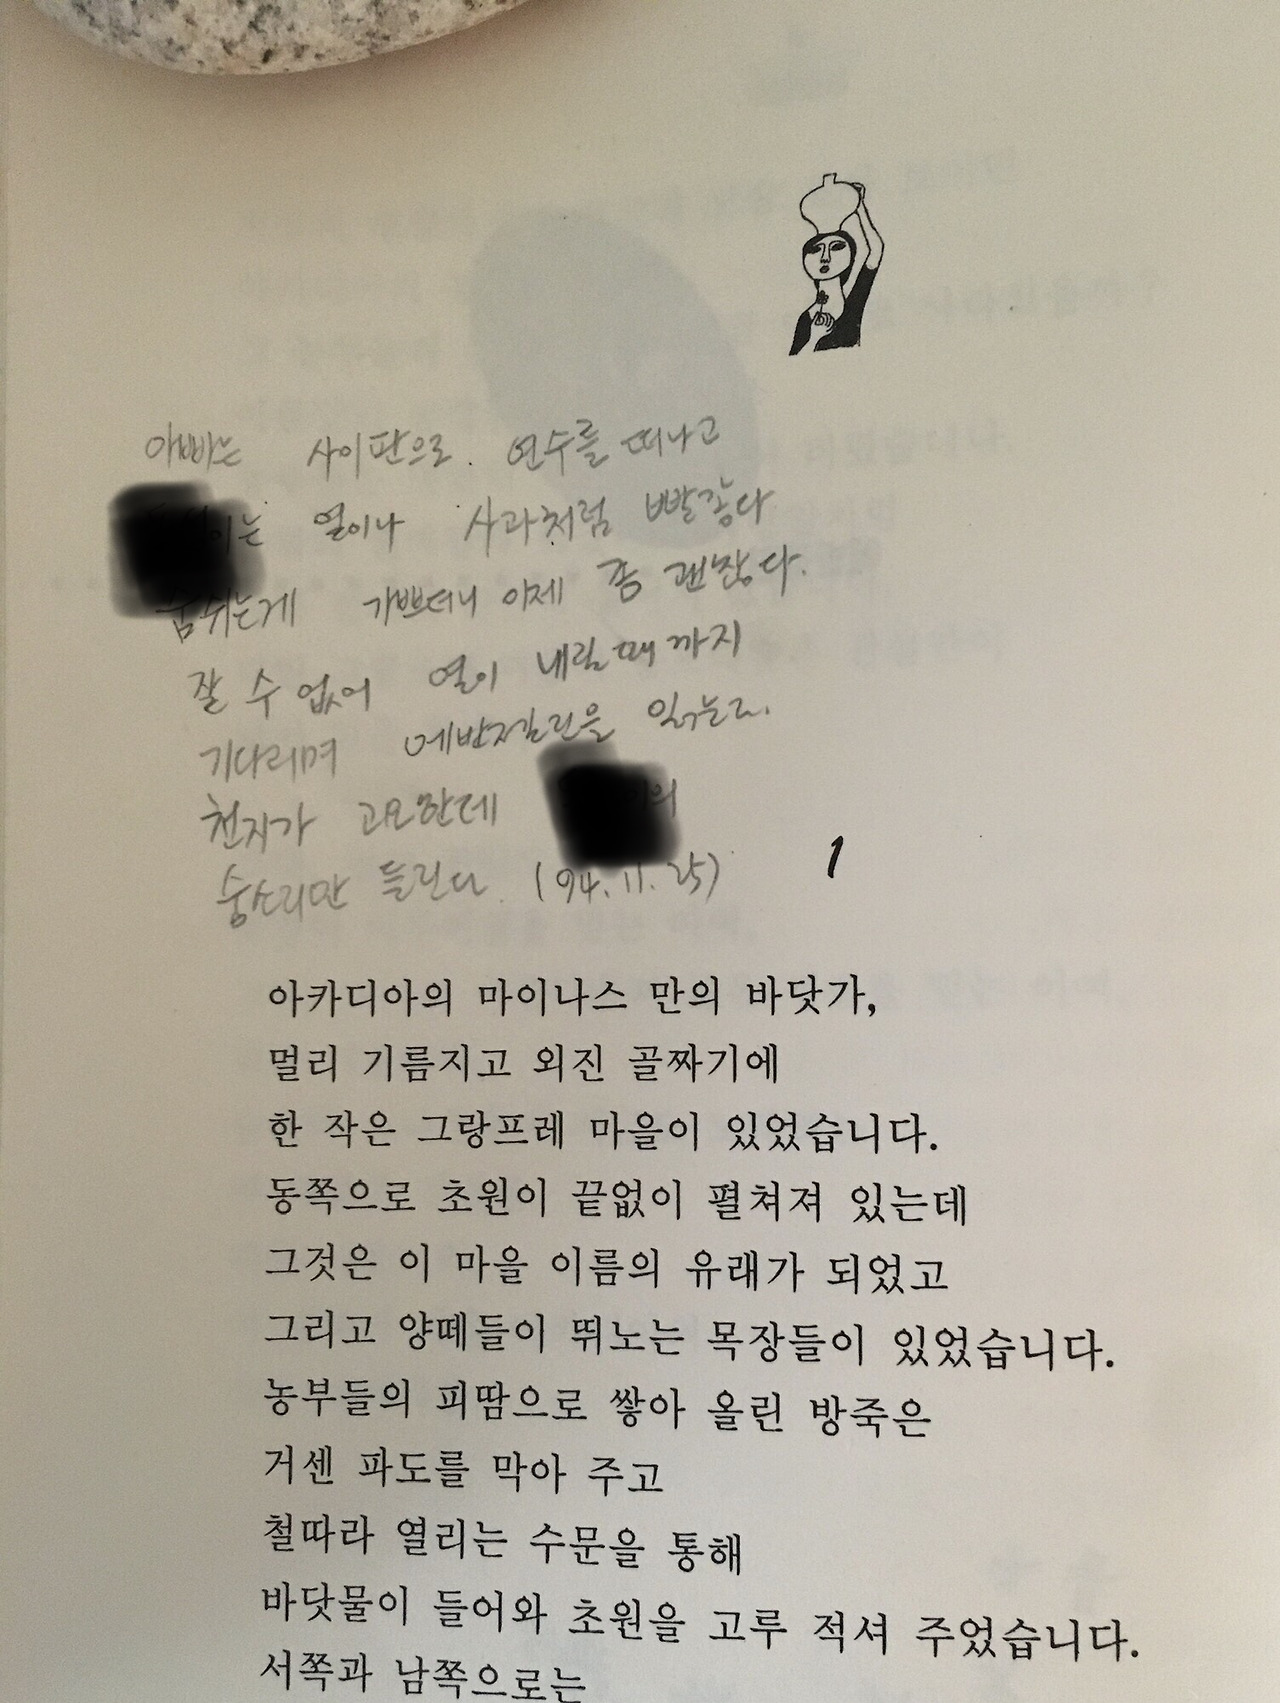 아빠는 사이판으로 연수를 떠나고
이는 열이나 사과처럼 빨갛다
숨쉬는게 가쁘더니 이제 좀 괜찮다.
잘 수 없어 열이 내릴때까지
기다리며 에반제린을 읽는다.
천지가 고요한데 이의
숨소리만 들린다. (94.11.25)
1
아카디아의 마이나스 만의 바닷가,
멀리 기름지고 외진 골짜기에
한 작은 그랑프레 마을이 있었습니다.
동쪽으로 초원이 끝없이 펼쳐져 있는데
그것은 이 마을 이름의 유래가 되었고
그리고 양떼들이 뛰노는 목장들이 있었습니다.
농부들의 피땀으로 쌓아 올린 방죽은
거센 파도를 막아 주고
철따라 열리는 수문을 통해
바닷물이 들어와 초원을 고루 적셔 주었습니다.
서쪽과 남쪽으로는